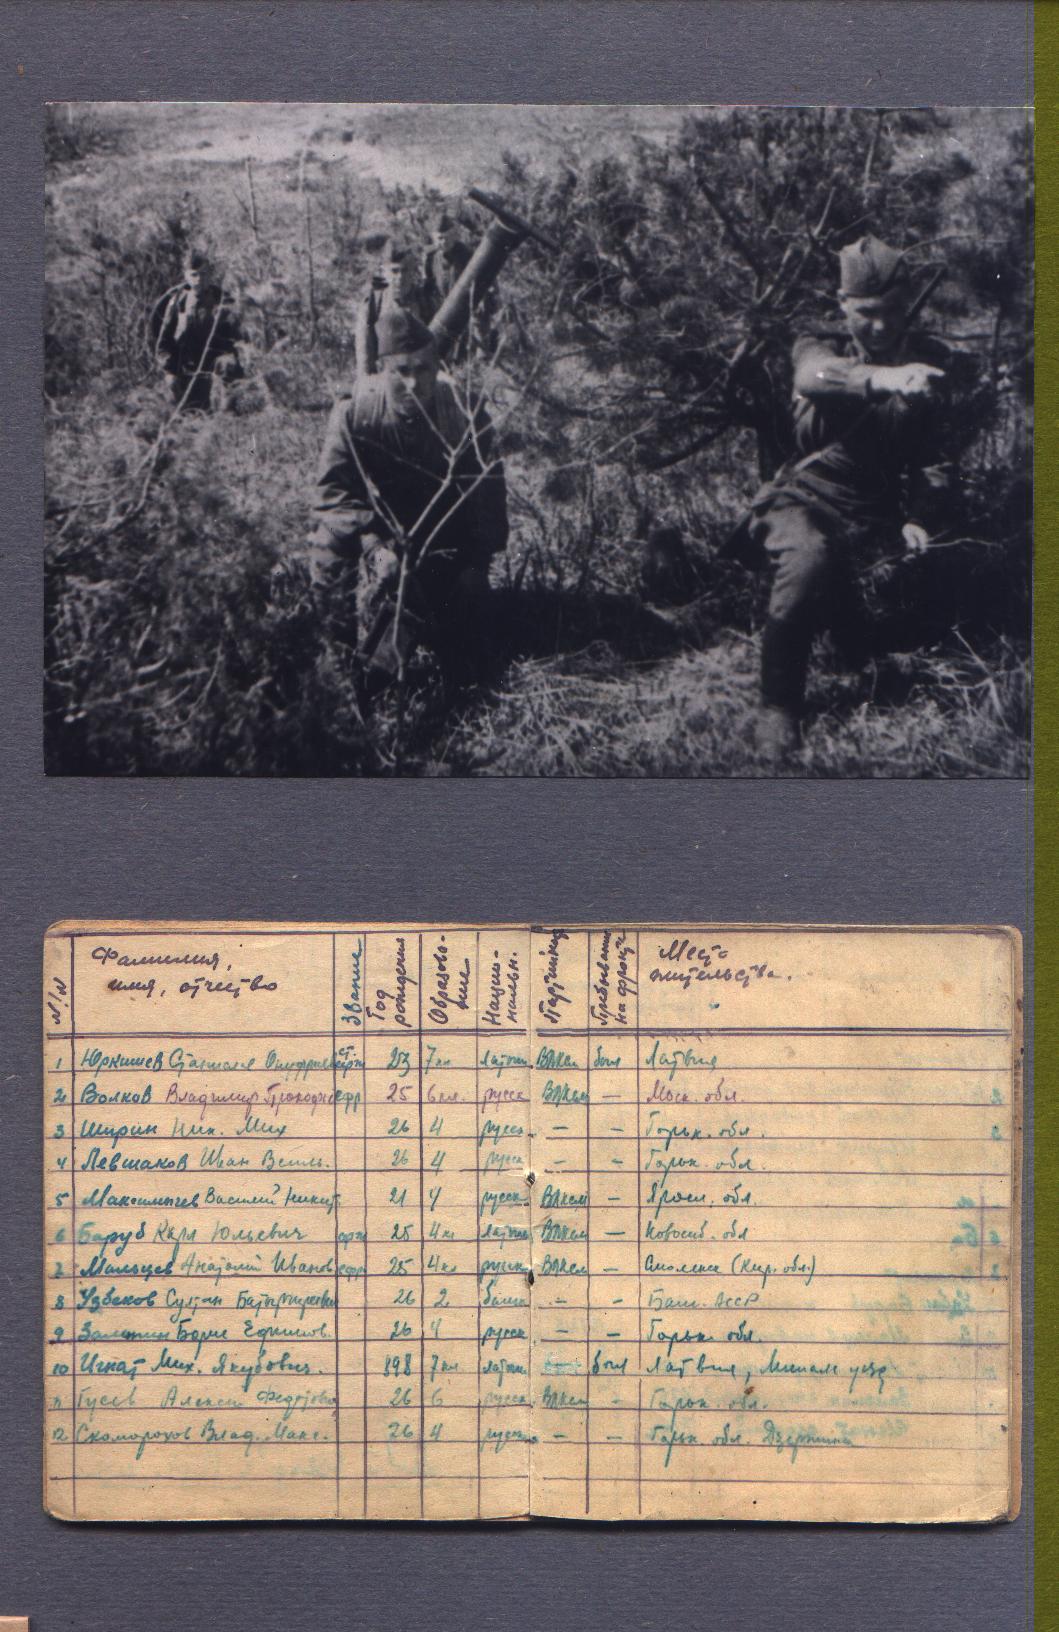 N/N Фамилия, имя, отчество Звание Год рождения Образова-ние Нацио-нальн. Партийн Пребывание на фронте Место жительства.
1 Юркшев 23 7 кл латыш ВЛКСМ был Латвия
2 Волков Владимир 25 6 кл. русск ВЛКСМ — Моск. обл.
3 Ширин Ник. Мих 26 4 русск — — Горьк. обл.
4 Левшаков Иван Вениам. 26 4 русск — — Горьк. обл.
5 Василий Никит. 21 4 русск ВЛКСМ — Яросл. обл.
6 Баруб Карл Юльевич 25 4 кл латыш ВЛКСМ — Новосиб. обл
7 Мальцев Анатолий Иванов ефр 25 4 кл русск ВЛКСМ — (Кир. обл.)
8 Узбеков Султан 26 2 — — Баш. АССР
9 Борис Ефимов. 26 4 русск — — Горьк. обл.
10 Игнат Мих. Якубович. 898 7 кл латыш был Латвия, уезд
11 Гусев Алексей 26 6 русск ВЛКСМ — Горьк. обл.
12 Скоморохов Влад. Макс. 26 4 русск — — Горьк обл. Дзержинск